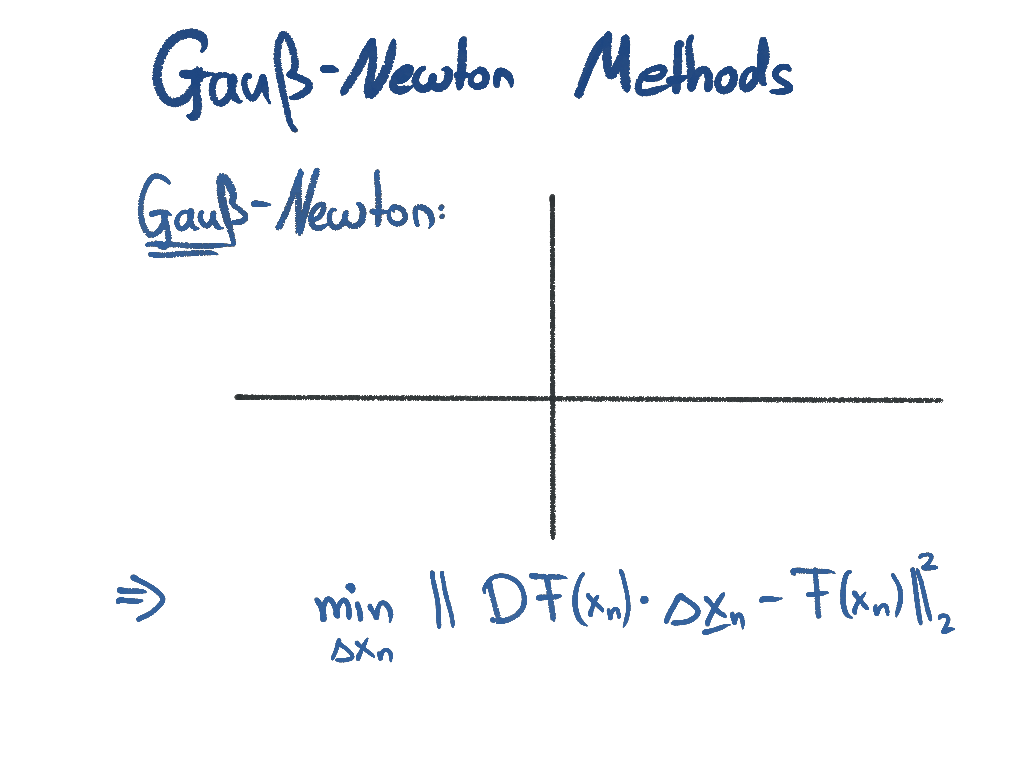 Gauß-Newton Methods
Gauß-Newton:
⇒ min ‖ DF(xₙ) · Δxₙ − F(xₙ) ‖₂²
Δxₙ